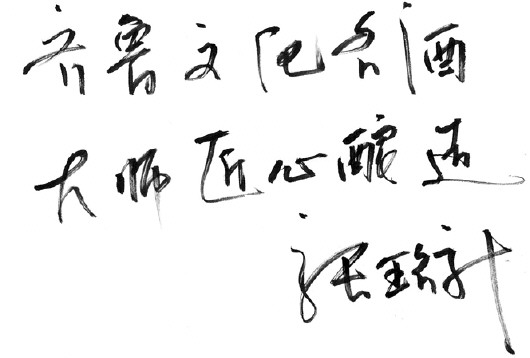 齐鲁文化名酒
大师匠心酿造
张